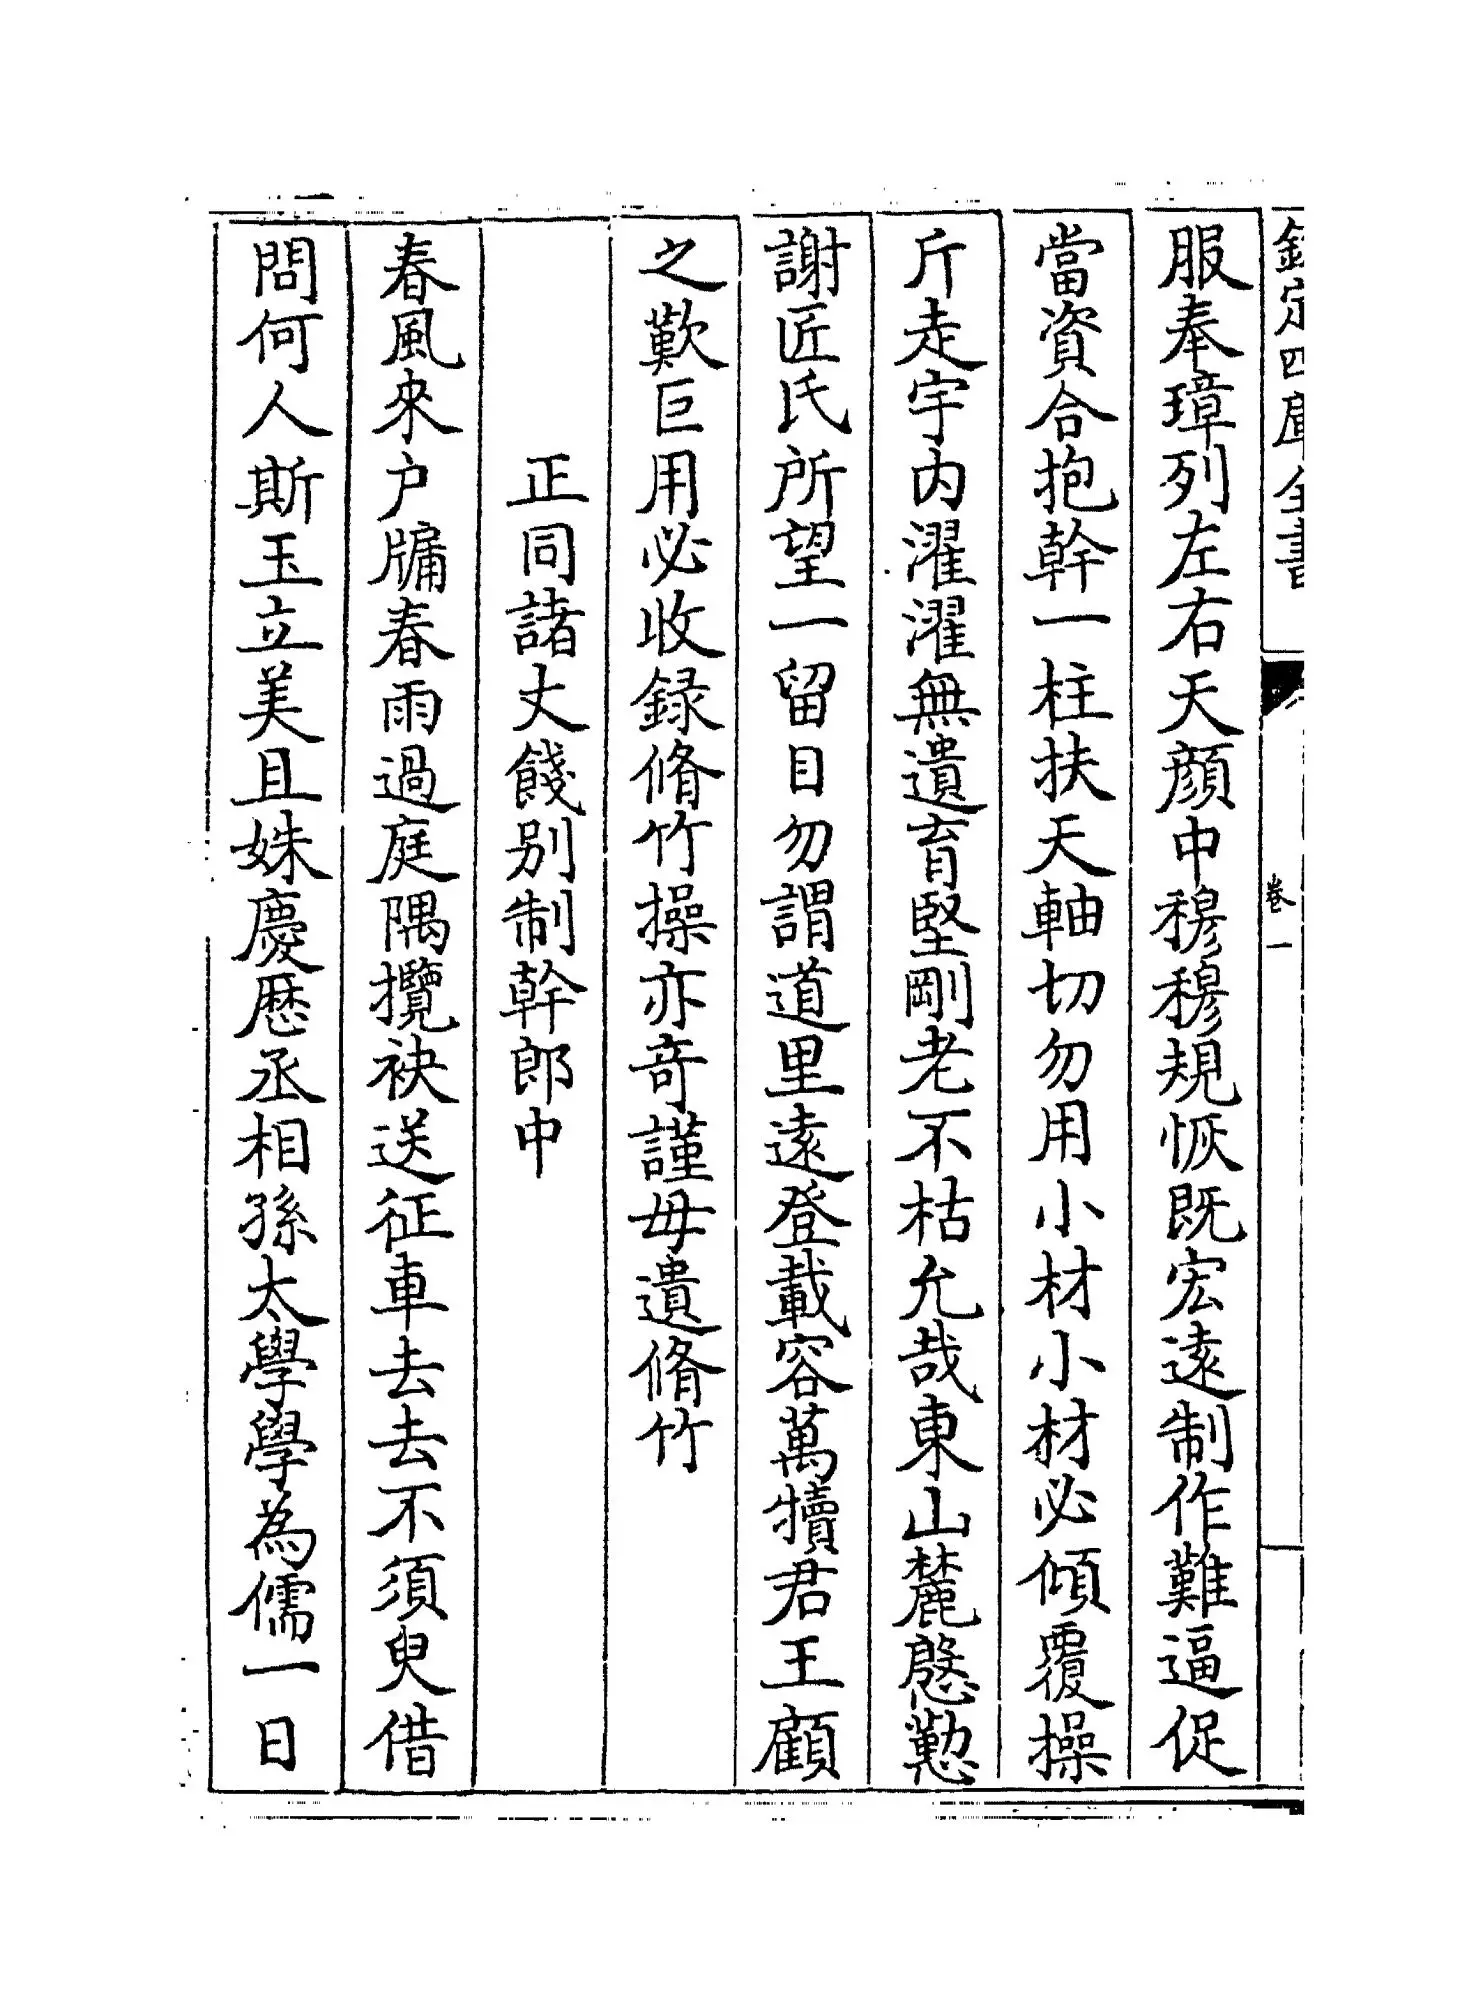 欽定四庫全書
卷一
服奉璋列左右天顔中穆穆規恢既宏逺制作難逼促
當資合抱幹一柱扶天軸切勿用小材小材必傾覆操
斤走宇内濯濯無遺育堅剛老不枯允哉東山麓慇懃
謝匠氏所望一留目勿謂道里逺登載容萬犢君王顧
之歎巨用必收録脩竹操亦竒謹毋遺脩竹
正同諸丈餞别制幹郎中
春風來户牖春雨過庭隅攬袂送征車去去不須臾借
問何人斯玉立美且姝慶厯丞相孫太學學為儒一日